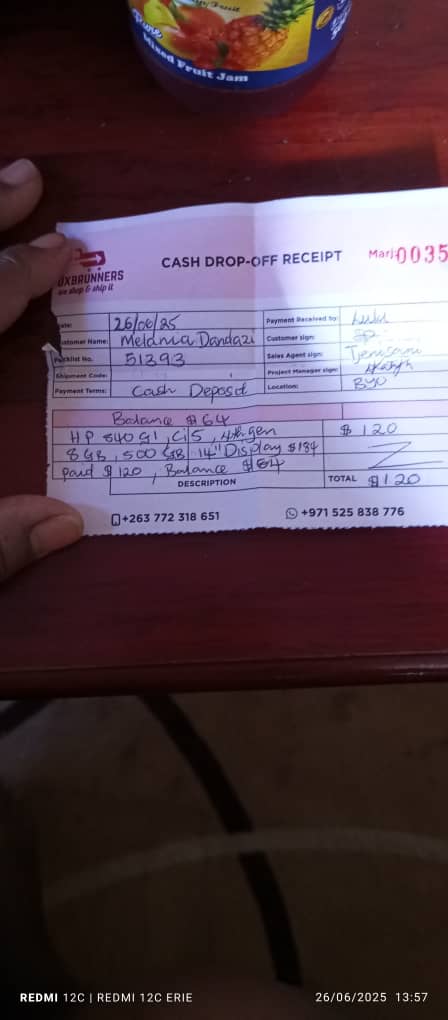 Mixed Fruit Jam
CASH DROP-OFF RECEIPT
0035
UXBRUNNERS
we shop & ship it
Date: 26/06/25
Customer Name: Melania Dandazi
Packlist No. 51393
Shipment Code:
Payment Terms: Cash Deposit
Payment Received to: Lulu
Customer sign:
Sales Agent sign:
Project Manager sign:
Location: BYO
Balance $64
HP 840 G1, Ci5, 4th gen $120
8GB, 500 GB 14" Display $184
paid $120, Balance $64
DESCRIPTION TOTAL $120
+263 772 318 651 +971 525 838 776
REDMI 12C | REDMI 12C ERIE 26/06/2025 13:57